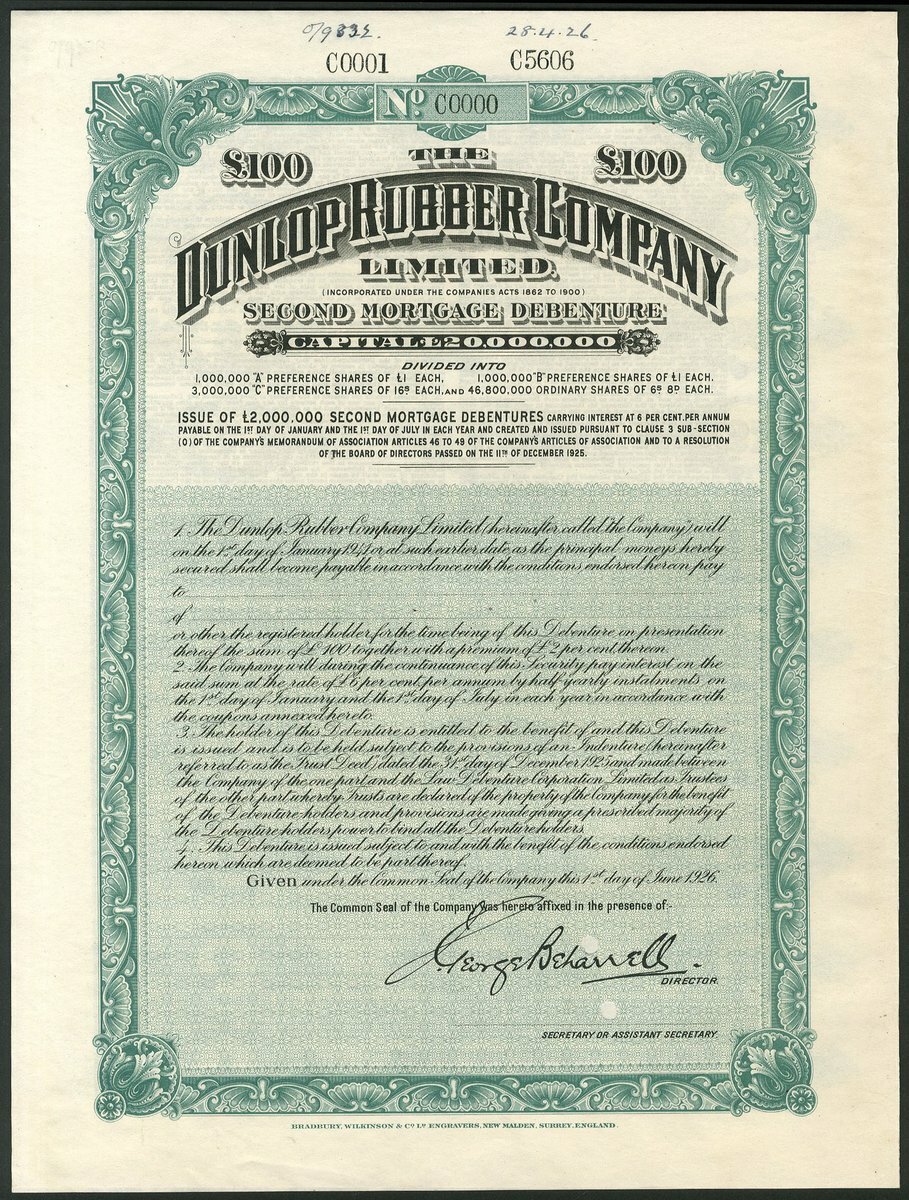 O/9332. 28.4.26.
C0001 C5606
No. C0000
£100 THE £100
DUNLOP RUBBER COMPANY
LIMITED.
(INCORPORATED UNDER THE COMPANIES ACTS 1862 TO 1900)
SECOND MORTGAGE DEBENTURE
CAPITAL £20,000,000
DIVIDED INTO
1,000,000 "A" PREFERENCE SHARES OF £1 EACH, 1,000,000 "B" PREFERENCE SHARES OF £1 EACH.
3,000,000 "C" PREFERENCE SHARES OF 16S EACH, AND 46,800,000 ORDINARY SHARES OF 6S 8D EACH.
ISSUE OF £2,000,000 SECOND MORTGAGE DEBENTURES CARRYING INTEREST AT 6 PER CENT. PER ANNUM
PAYABLE ON THE 1ST DAY OF JANUARY AND THE 1ST DAY OF JULY IN EACH YEAR AND CREATED AND ISSUED PURSUANT TO CLAUSE 3 SUB-SECTION
(O) OF THE COMPANY'S MEMORANDUM OF ASSOCIATION ARTICLES 46 TO 49 OF THE COMPANY'S ARTICLES OF ASSOCIATION AND TO A RESOLUTION
OF THE BOARD OF DIRECTORS PASSED ON THE 11TH OF DECEMBER 1925.
1. The Dunlop Rubber Company Limited (hereinafter called "the Company") will
on the 1st day of January 1941 or at such earlier date as the principal moneys hereby
secured shall become payable in accordance with the conditions endorsed hereon pay
to
of
or other the registered holder for the time being of this Debenture on presentation
thereof the sum of £100 together with a premium of £2 per cent. thereon.
2. The Company will during the continuance of this Security pay interest on the
said sum at the rate of £6 per cent. per annum by half-yearly instalments on
the 1st day of January and the 1st day of July in each year in accordance with
the coupons annexed hereto.
3. The holder of this Debenture is entitled to the benefit of and this Debenture
is issued and is to be held subject to the provisions of an Indenture (hereinafter
referred to as the Trust Deed) dated the 31st day of December 1925 and made between
the Company of the one part and the Law Debenture Corporation Limited as Trustees
of the other part whereby Trusts are declared of the property of the Company for the benefit
of the Debenture holders and provisions are made giving a prescribed majority of
the Debenture holders power to bind all the Debentureholders.
4. This Debenture is issued subject to and with the benefit of the conditions endorsed
hereon which are deemed to be part thereof.
Given under the Common Seal of the Company this 1st day of June 1926.
The Common Seal of the Company was hereto affixed in the presence of:-
George Beharrell
DIRECTOR.
SECRETARY OR ASSISTANT SECRETARY.
BRADBURY, WILKINSON & Co. Ld. ENGRAVERS, NEW MALDEN, SURREY, ENGLAND.